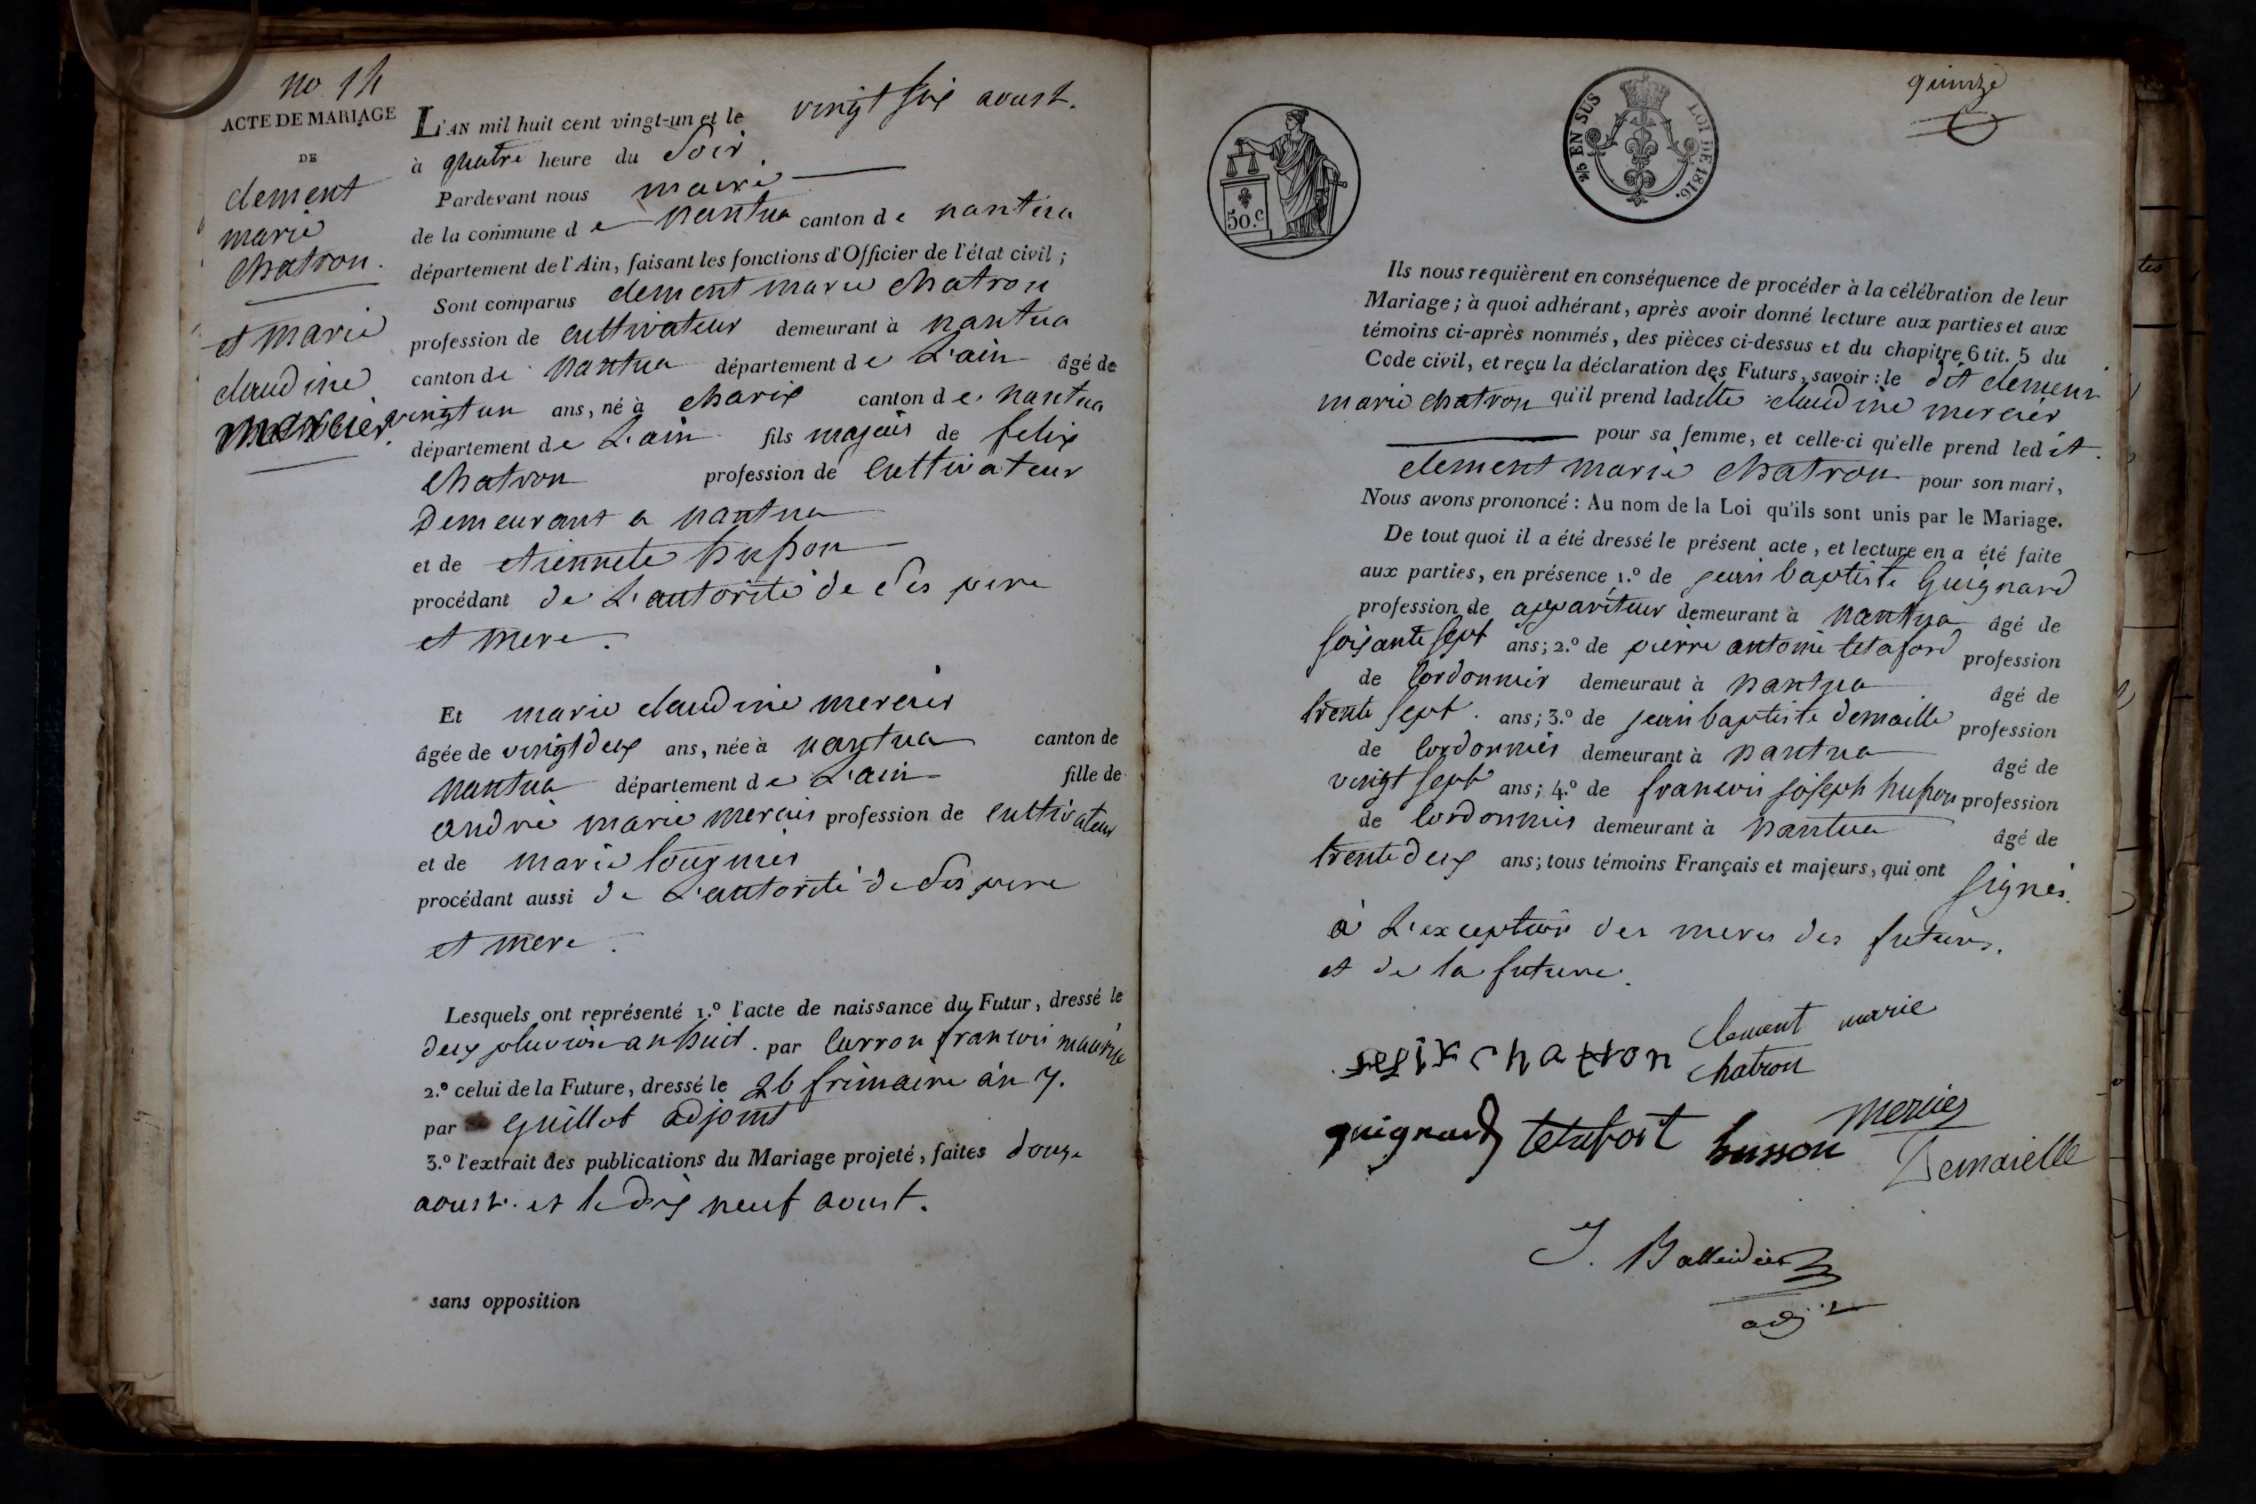 no 14
ACTE DE MARIAGE
DE
clement
marie
chatron.
et marie
claudine
mercier.
L'AN mil huit cent vingt-un et le vingt six aoust.
à quatre heure du Soir
Pardevant nous maire
de la commune de nantua canton de nantua
département de l'Ain, faisant les fonctions d'Officier de l'état civil ;
Sont comparus clement marie chatron
profession de cultivateur demeurant à nantua
canton de nantua département de L'ain âgé de
vingt un ans, né à charix canton de nantua
département de L'ain fils majeur de felix
chatron profession de cultivateur
Demeurant a nantua
et de etiennete husson
procédant de L'autorité de Ses pere
et mere.
Et marie claudine mercier
âgée de vingt deux ans, née à nantua canton de
nantua département de L'ain fille de
andré marie mercier profession de cultivateur
et de marie tournier
procédant aussi de L'autorité de Ses pere
et mere.
Lesquels ont représenté 1.º l'acte de naissance du Futur, dressé le
deux pluviose an huit. par curron francois maurice
2.º celui de la Future, dressé le 26 frimaire an 7.
par Guillot adjoint
3.º l'extrait des publications du Mariage projeté, faites douze
aoust. et le dix neuf aoust.
sans opposition
50.c
25 EN SUS LOI DE 1816.
quinze
Ils nous requièrent en conséquence de procéder à la célébration de leur
Mariage ; à quoi adhérant, après avoir donné lecture aux parties et aux
témoins ci-après nommés, des pièces ci-dessus et du chapitre 6 tit. 5 du
Code civil, et reçu la déclaration des Futurs, savoir : le dit clement
marie chatron qu'il prend ladite claudine mercier
pour sa femme, et celle-ci qu'elle prend ledit
clement marie chatron pour son mari,
Nous avons prononcé : Au nom de la Loi qu'ils sont unis par le Mariage.
De tout quoi il a été dressé le présent acte, et lecture en a été faite
aux parties, en présence 1.º de jean baptiste Guignard
profession de appariteur demeurant à nantua âgé de
soixante sept ans ; 2.º de pierre antoine tetaford profession
de Cordonnier demeurant à nantua âgé de
trente sept. ans ; 3.º de jean baptiste demaille profession
de cordonnier demeurant à nantua âgé de
vingt sept ans ; 4.º de francois joseph husson profession
de cordonnier demeurant à nantua âgé de
trente deux ans ; tous témoins Français et majeurs, qui ont Signés.
à L'exception des meres des futurs.
et de la future.
felix chatron clement marie
chatron
guignard tetafort husson mercier
Demaielle
J. Balleidier
adj.t